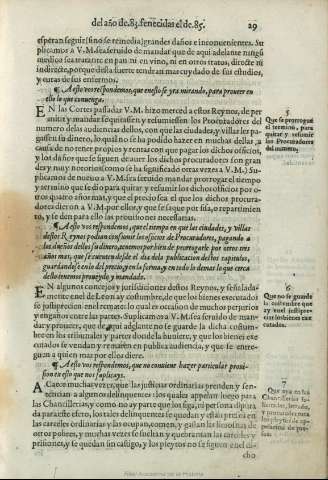 del año de.83.fenecidas el de.85. 29
esperan seguir (si no se remedia) grandes daños e inconuenientes. Su
plicamos a V.M. sea seruido de mandar que de aqui adelante ningũ
medico sea tratante en pan ni en vino, ni en otros tratos, directe ni
indirecte, porque desta suerte tendran mas cuydado de sus estudios,
y curas de sus enfermos.
¶ A esto vos respondemos, que en esto se yra mirando, para proueer en
ello lo que conuenga.
EN las Cortes passadas V.M. hizo merced a estos Reynos, de per
mitir y mandar se quitassen y resumiessen los Procuradores del
numero delas audiencias dellos, con que las ciudades, y villas les pa
gassen su dinero, lo qual no se ha podido hazer en muchas dellas a
causa de no tener propios y rentas con que poder pagar los dichos ofi
cios, y los daños que se siguen de auer los dichos procuradores son gran
des y muy notorios (como se ha significado otras vezes a V.M.) Su-
plicamos de nueuo a V.M. sea seruido mandar prorrogar el tiempo
y termino que se dio para quitar y resumir los dichos officios por o-
tros quatro años mas, y que el precio sea el que los dichos procura
dores dieron a V.M. por ellos, y que se supo por sisa, o repartimien-
to, y se den para ello las prouisiones necessarias.
¶ A esto vos respondemos, que el tiempo en que las ciudades, y villas
destos Reynos podian consumir los officios de Procuradores, pagando a
los dueños dellos su dinero, tenemos por bien de prorrogarle por otros tres
años mas, que se cuenten desde el dia dela publicacion destos capitulos,
guardandose enlo del precio, y en la forma, y en todo lo demas lo que cerca
dello tenemos proueydo y mandado.
EN algunos concejos y jurisdiciones destos Reynos, y señalada-
mente en el de Leon ay costumbre, de que los bienes executados
se justiprecien en el remate, lo qual es ocasion de muchos perjurios
y engaños entre las partes. Suplicamos a V.M. sea seruido de man-
dar y proueer, que de aqui adelante no se guarde la dicha costum-
bre en los tribunales y partes donde la huuiere, y que los bienes exe
cutados se vendan y rematen en publica audiencia, y que se entre-
guen a quien mas por ellos diere.
¶ A esto vos respondemos, que no conuiene hazer particular proui-
sion en esto que nos suplicays.
ACaece muchas vezes, que las justicias ordinarias prenden y sen-
tencian a algunos delinquentes: los quales appelan luego para
las Chancillerias, y como no ay parte que los siga, ni persona diputa
da para este efeto, los tales delinquentes se quedan y estan presos en
las carceles ordinarias y las ocupan, comen, y gastan las limosnas de
otros pobres, y muchas vezes se sueltan y quebrantan las carceles y
prisiones, y se quedan sin castigo, y los pleytos no se siguen en di-
cho
5
Que se prorrogue
el termino, para
quitar y resumir
los Procuradores
del numero.
6
Que no se guarde
la costumbre que
ay enel justipre-
ciar los bienes exe
cutados.
7
Que aya en las
Chancillerias
Real Academia de la Historia